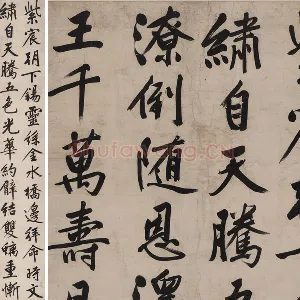 繡自天騰五
潦倒隨恩澤
王千萬壽
紫宸朝下錫靈絲金水橋邊拜命時文
繡自天騰五色光華約臂結雙螭重慚